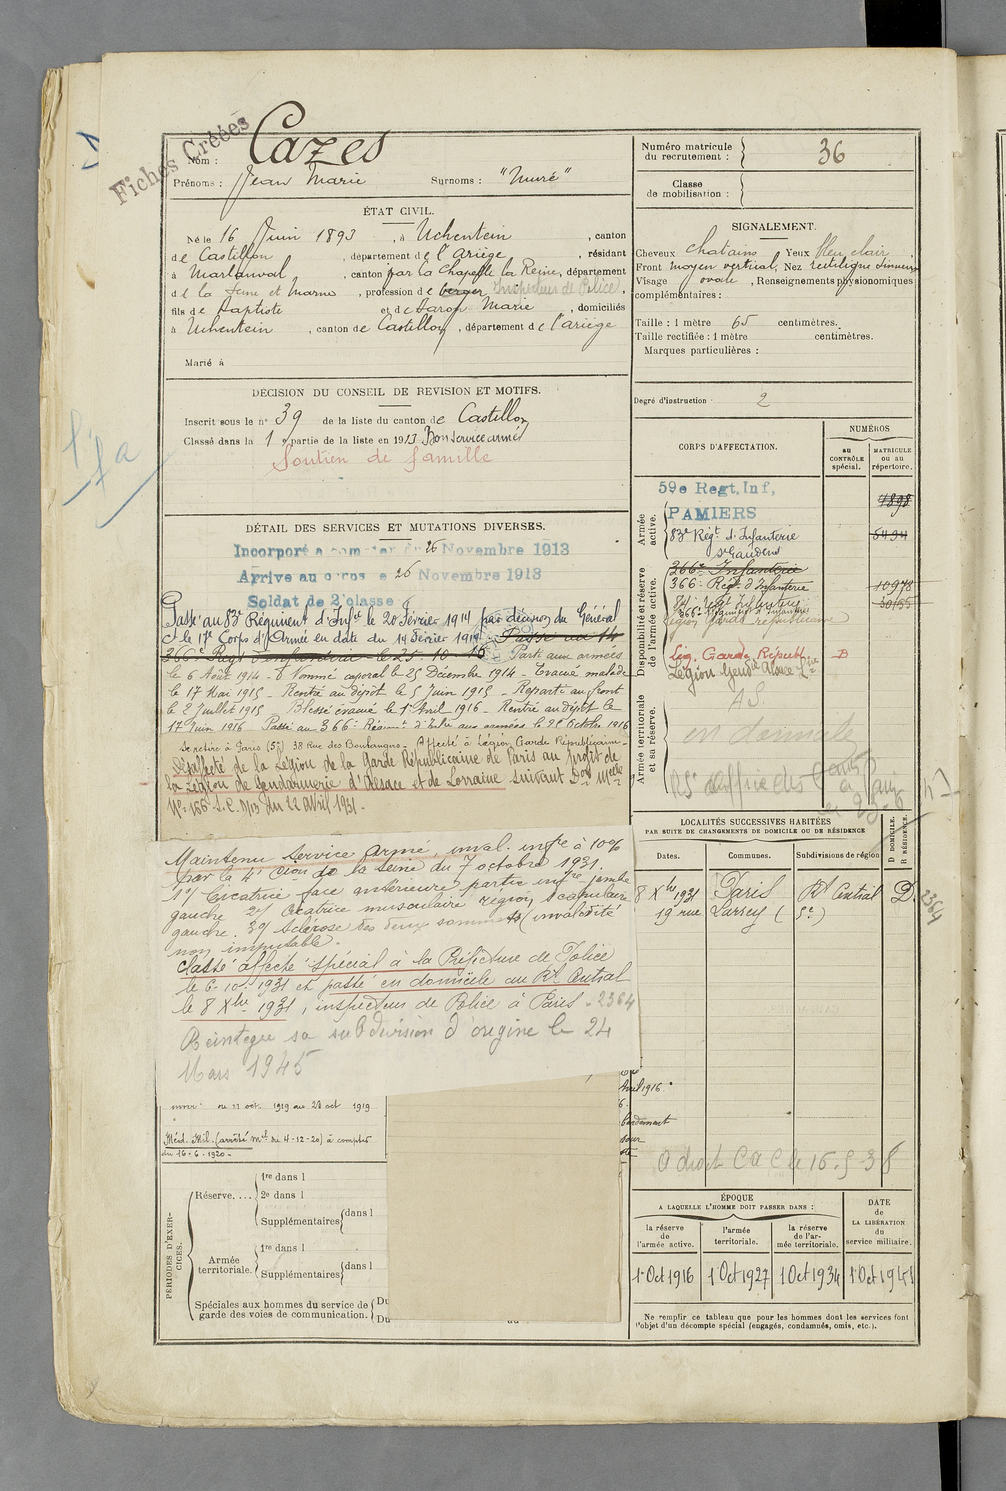 Fiches Créées
Nom : Cazes
Prénoms : Jean Marie Surnoms : "Muré"
ÉTAT CIVIL.
Né le 16 Juin 1893, à Uchentein, canton
de Castillon, département de l'Ariège, résidant
à Marlanval, canton par la Chapelle la Reine, département
de la Seine et Marne, profession de berger Inspecteur de Police,
fils de Baptiste et de Marie, domiciliés
à Uchentein, canton de Castillon, département de l'ariège
Marié à
DÉCISION DU CONSEIL DE REVISION ET MOTIFS.
Inscrit sous le n° 39 de la liste du canton de Castillon
Classé dans la 1e partie de la liste en 1913 Bon service armé
Soutien de famille
DÉTAIL DES SERVICES ET MUTATIONS DIVERSES.
Incorporé a compter du 26 Novembre 1913
Arrive au corps le 26 Novembre 1913
Soldat de 2e classe
Passé au 83e Régiment d'Infie le 20 Février 1914 par décision du Général
Ct le 17e Corps d'Armée en date du 14 Février 1914. Passé au 14
366e Regt d'infanterie le 25-10-16 Parti aux armées
le 6 Août 1914 - Nommé caporal le 25 Décembre 1914 - Evacué malade
le 17 Mai 1915 - Rentré au dépôt le 5 Juin 1915 - Reparti au front
le 2 Juillet 1915 Blessé évacué le 1 Avril 1916 - Rentré au dépôt le
17 Juin 1916 Passé au 366e Régiment d'Infie aux armées le 26 Octobre 1916
Se retire à Paris (5e) 38 Rue des Boulangers - Affecté à Légion Garde Républicaine -
Désaffecté de la Légion de la Garde Républicaine de Paris au profit de
la Légion de Gendarmerie d'Alsace et de Lorraine suivant
N° 155 S.C. 9/13 du 22 avril 1931.
Maintenu service armé, inval. infre à 10%
par la 4e Cion de la Seine du 7 octobre 1931.
1°/ Cicatrice face antérieure partie infre jambe
gauche 2°/ Cicatrice musculaire région scapulaire
gauche. 3°/ Sclérose des deux sommets (invalidité
non imputable.
Classé "affecté" spécial à la Préfecture de Police
le 6-10-1931 et passé en domicile au Rt Central
le 8 Xbre 1931, inspecteur de Police à Paris - 2364
Reintegre sa subdivision d'origine le 24
Mars 1945
du 11 oct. 1919 au 28 oct 1919
Méd. Mil. (arrêté mel du 4-12-20) à compter
du 16-6-1920 -
PÉRIODES D'EXERCICES.
Réserve.... 1re dans l
2e dans l
Supplémentaires dans l
Armée territoriale. 1re dans l
Supplémentaires dans l
Spéciales aux hommes du service de
garde des voies de communication. Du
Du
au
Avril 1916
Numéro matricule
du recrutement : 36
Classe
de mobilisation :
SIGNALEMENT.
Cheveux chatains Yeux bleu clair,
Front moyen vertical, Nez rectiligne sinueux
Visage ovale, Renseignements physionomiques
complémentaires :
Taille : 1 mètre 65 centimètres.
Taille rectifiée : 1 mètre centimètres.
Marques particulières :
Degré d'instruction 2
CORPS D'AFFECTATION.
NUMÉROS
au CONTRÔLE spécial.
MATRICULE ou au répertoire.
Armée active.
59e Regt. Inf, 1898
PAMIERS
83e Régt d'Infanterie 5494
St Gaudens
Disponibilité et réserve de l'armée active.
366e Infanterie
366e Régt d'Infanterie 10978
Légion garde républicaine
Lég. Garde Républ. B
Légion Gendie Alsace Lne
Armée territoriale et sa réserve.
AS.
en domicile
LOCALITÉS SUCCESSIVES HABITÉES
PAR SUITE DE CHANGEMENTS DE DOMICILE OU DE RÉSIDENCE
D DOMICILE. R RÉSIDENCE.
Dates. Communes. Subdivisions de région
8 Xbre 1931 Paris Rt Central D. 2364
19 rue Larrey (5e)
a droit C a C le 16.5 38
ÉPOQUE
A LAQUELLE L'HOMME DOIT PASSER DANS :
DATE
de
LA LIBÉRATION
du
service militaire.
la réserve de l'armée active.
l'armée territoriale.
la réserve de l'armée territoriale.
1 Oct 1916 1 Oct 1927 1 Oct 1934 1 Oct 1941
Ne remplir ce tableau que pour les hommes dont les services font
l'objet d'un décompte spécial (engagés, condamnés, omis, etc.).